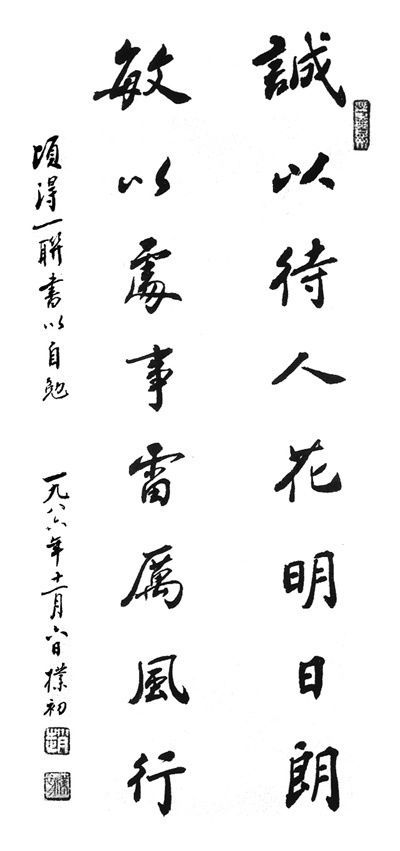 誠以待人花明日朗
敏以處事雷厲風行
頃得一聯書以自勉
一九八六年十一月六日 樸初